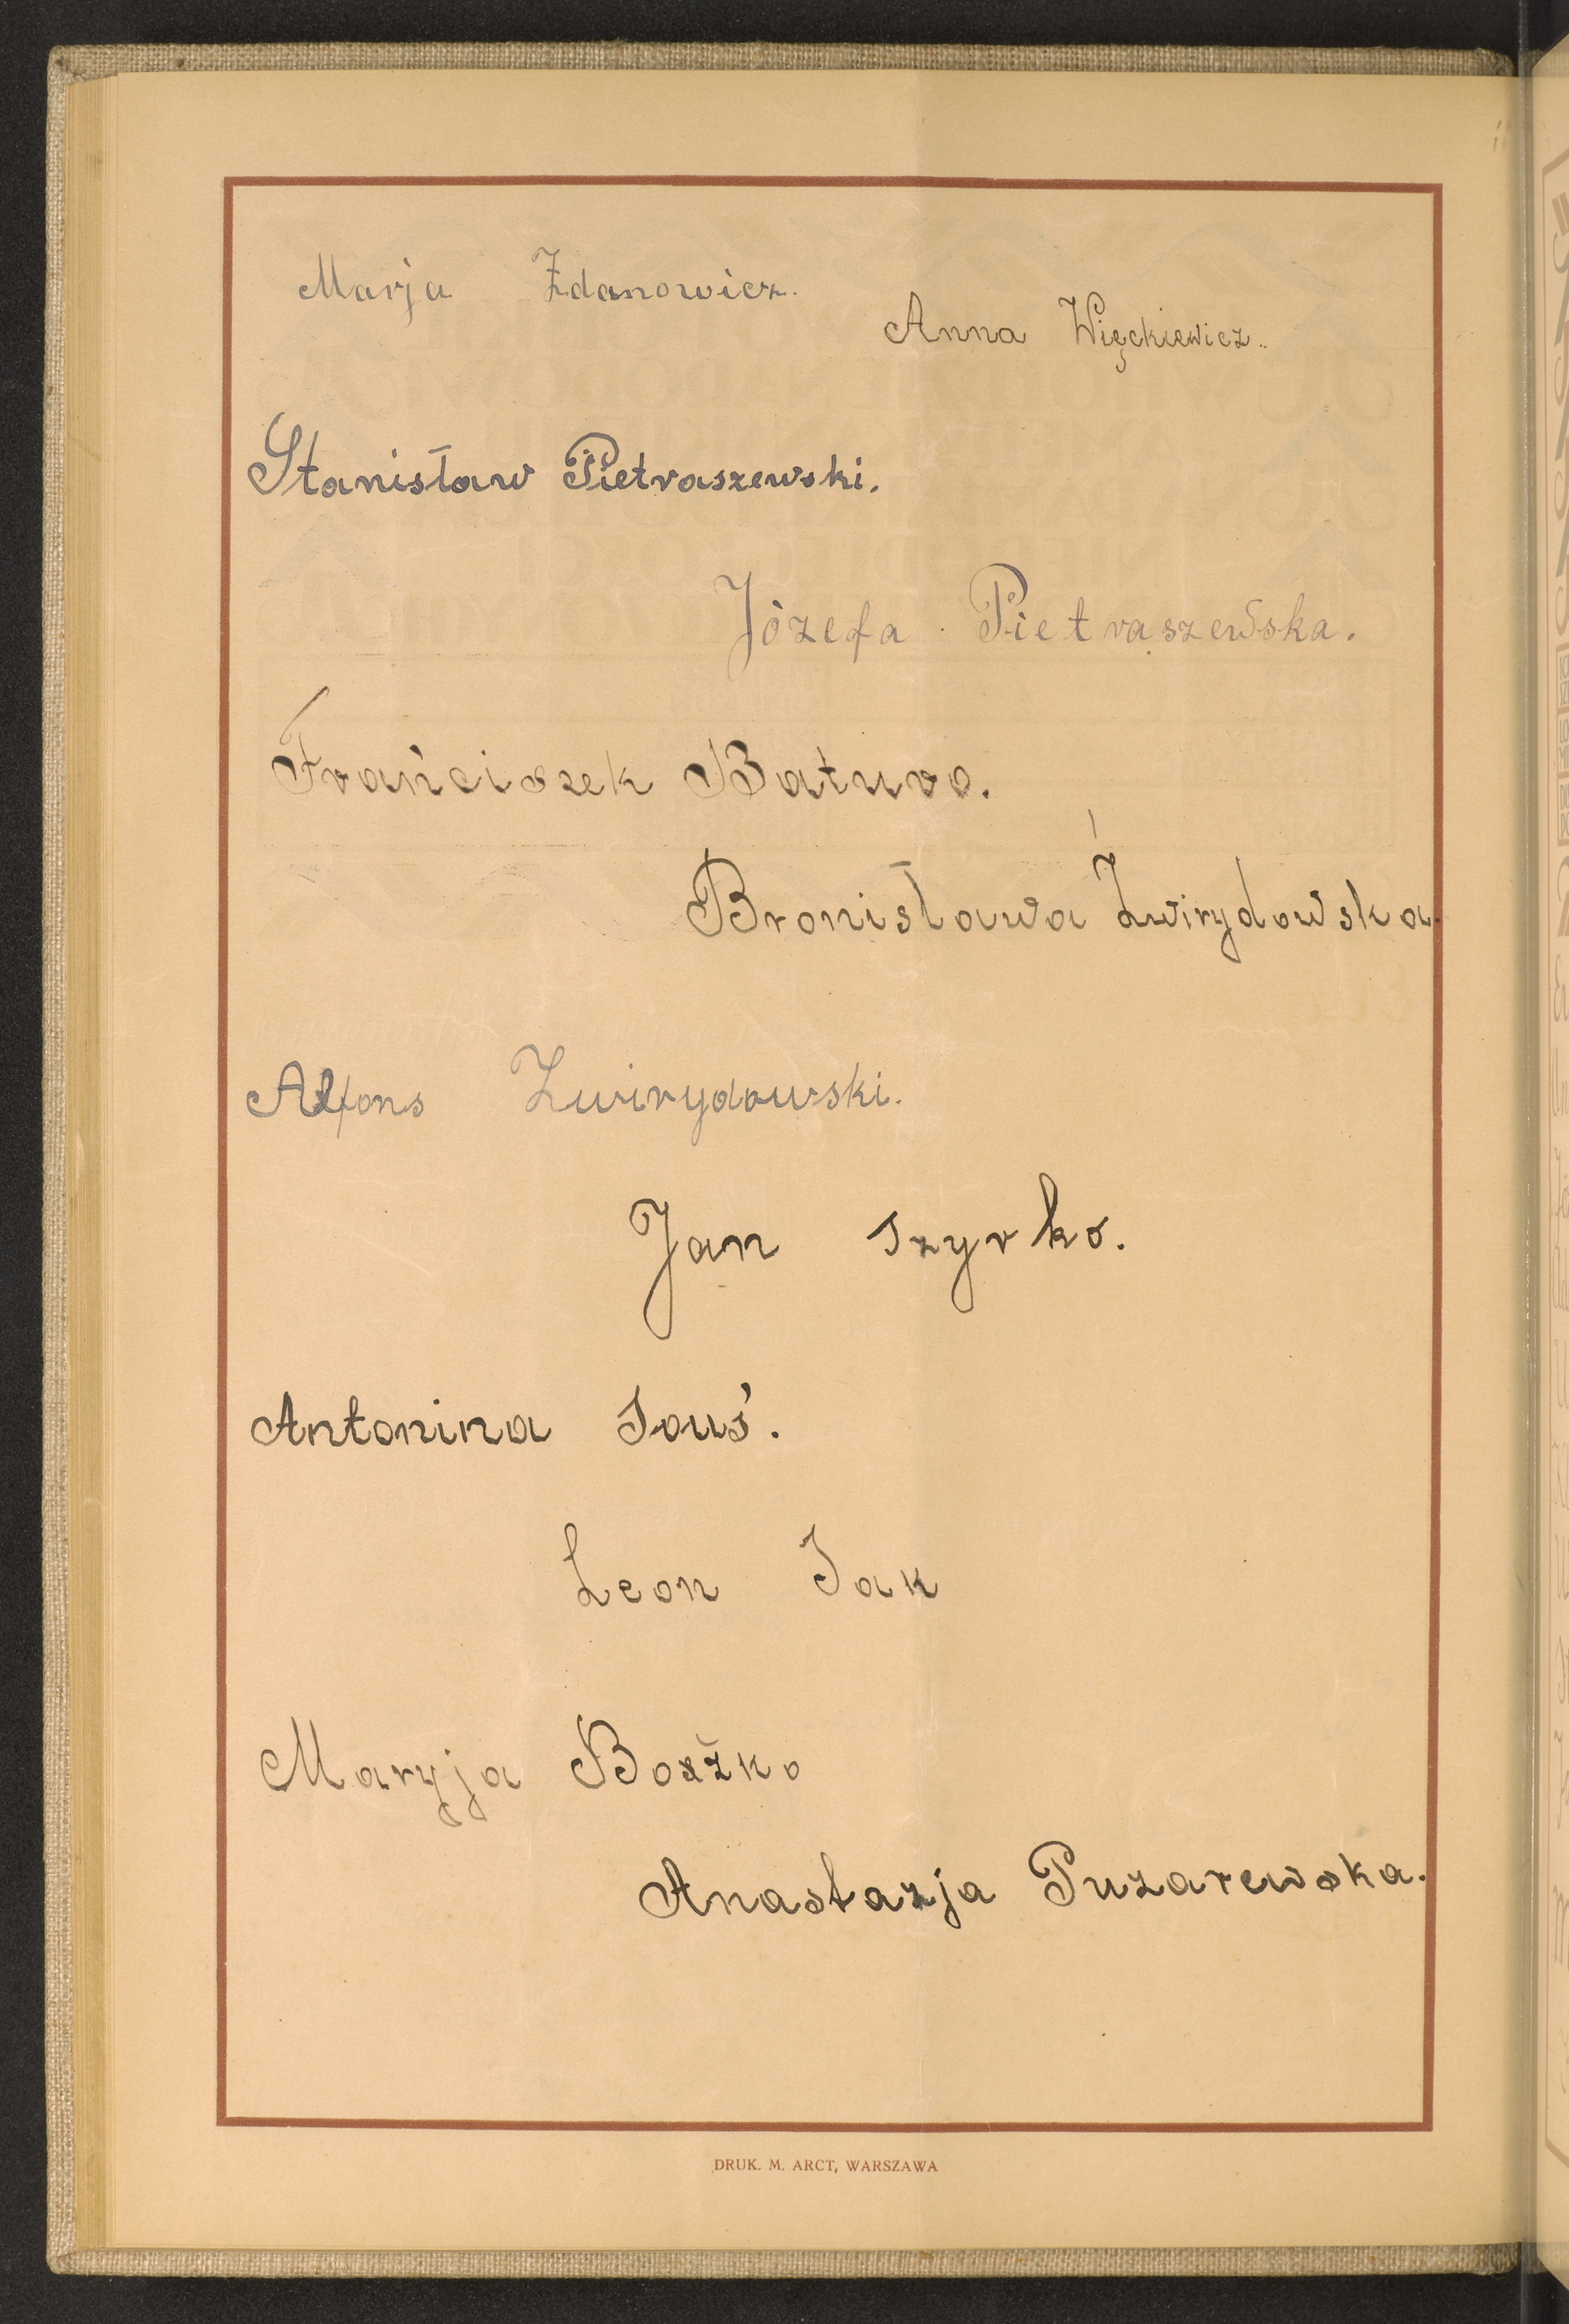 Marja Zdanowicz.
Anna Więckiewicz..
Stanisław Pietraszewski.
Józefa Pietraszewska.
Frańciszek Baturo.
Bronisława Żwirydowska.
Alfons Zwirydowski.
Jan Szyrko.
Antonina
Leon
Maryja
Anastazja Puzarewska.
DRUK. M. ARCT, WARSZAWA